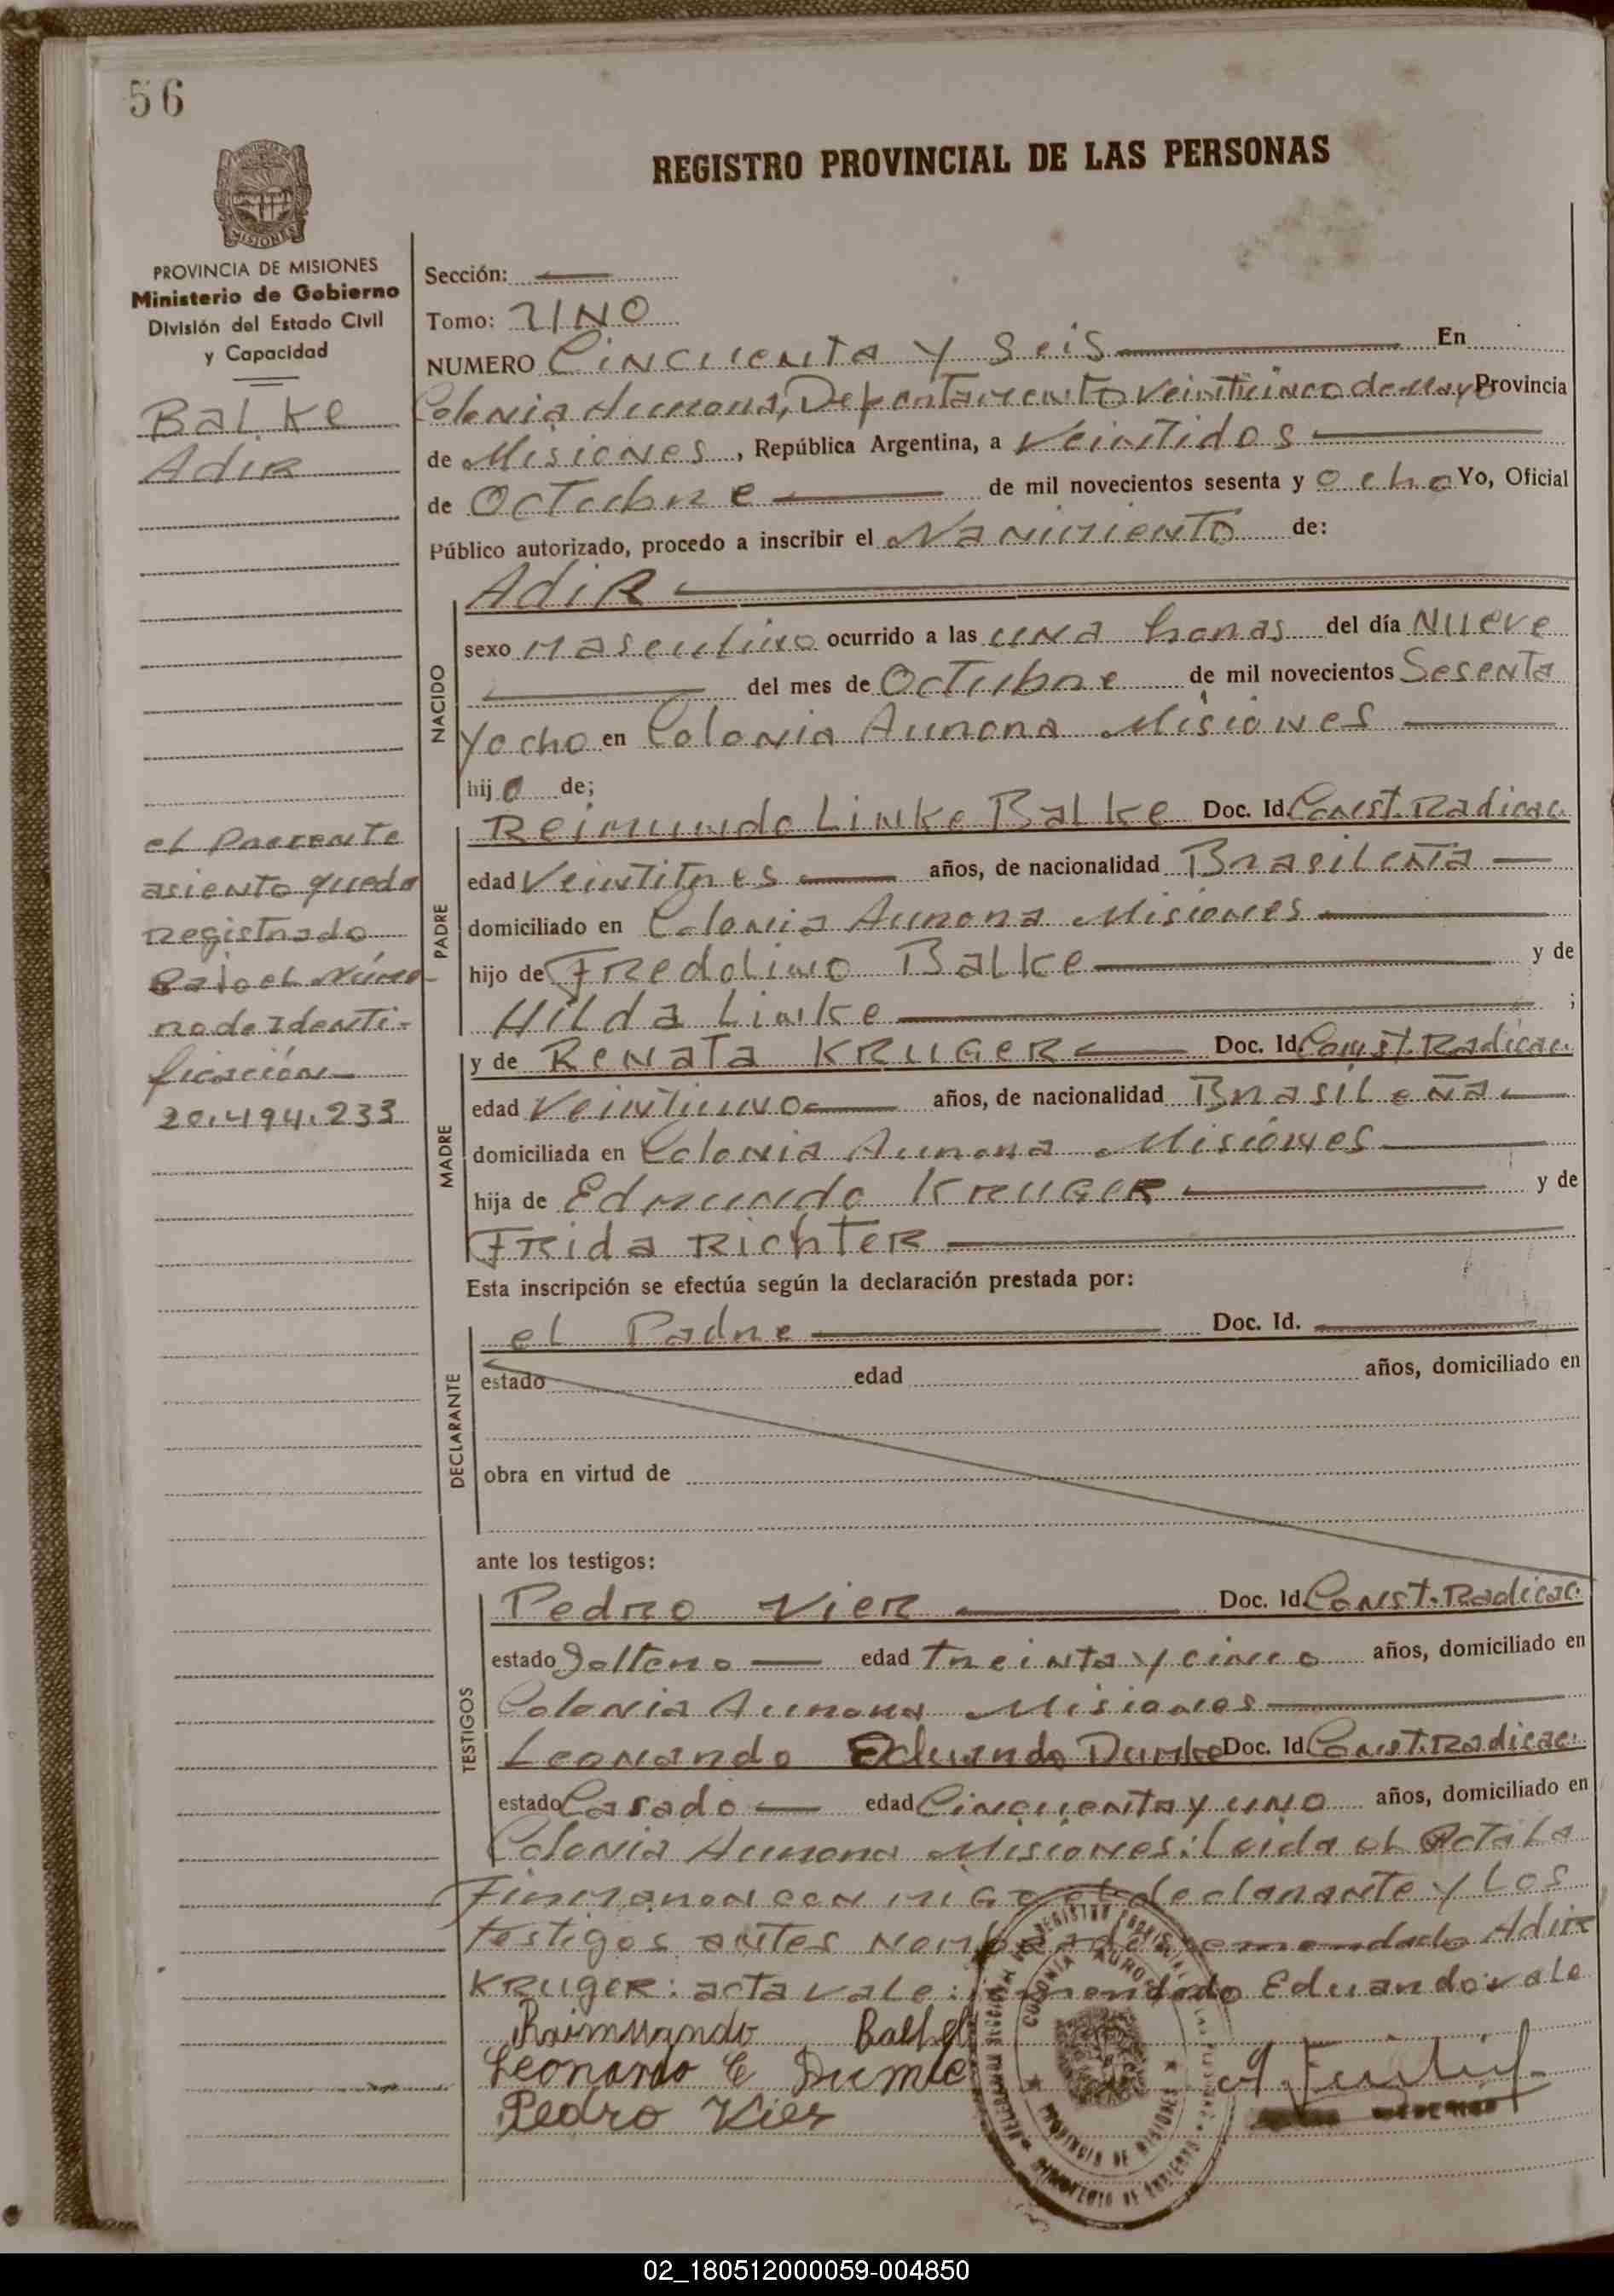 56
REGISTRO PROVINCIAL DE LAS PERSONAS
MISIONES
PROVINCIA DE MISIONES
Ministerio de Gobierno
División del Estado Civil
y Capacidad
Balke
Adir
el presente
asiento queda
registrado
Bajo el Núme-
ro de Identi-
ficación
20.494.233
Sección:
Tomo: UNO
NUMERO Cincuenta y Seis En
Colonia Aurora, Departamento Veinticinco de Mayo Provincia
de Misiones, República Argentina, a Veintidos
de Octubre de mil novecientos sesenta y ocho Yo, Oficial
Público autorizado, procedo a inscribir el Nacimiento de:
Adir
NACIDO
sexo Masculino ocurrido a las una horas del día Nueve
del mes de Octubre de mil novecientos Sesenta
Yocho en Colonia Aurora Misiones
hijo de;
PADRE
Reimundo Linke Balke Doc. Id. Const. Radicac.
edad Veintitres años, de nacionalidad Brasileña
domiciliado en Colonia Aurora Misiones
hijo de Fredolino Balke y de
Hilda Linke ;
MADRE
y de Renata KRUGER Doc. Id. Const. Radicac.
edad Veintiuno años, de nacionalidad Brasileña
domiciliada en Colonia Aurora Misiones
hija de Edmundo KRUGER y de
Frida Richter
Esta inscripción se efectúa según la declaración prestada por:
DECLARANTE
el Padre Doc. Id.
estado edad años, domiciliado en
obra en virtud de
ante los testigos:
TESTIGOS
Pedro Vier Doc. Id. Const. Radicac.
estado Soltero edad Treinta y cinco años, domiciliado en
Colonia Aurora Misiones
Leonardo Eduardo Dumke Doc. Id. Const. Radicac.
estado Casado edad Cincuenta y uno años, domiciliado en
Colonia Aurora Misiones: Leida el Acta La
Firmaron con migo el declarante y Los
testigos antes nombrados, enmendado Adir
KRUGER: acta vale: enmendado Eduardo: vale
Raimundo
Leonardo E Dumke
Pedro Vier
COLONIA AURORA
PROVINCIA DE MISIONES
MINISTERIO DE GOBIERNO
02_180512000059-004850